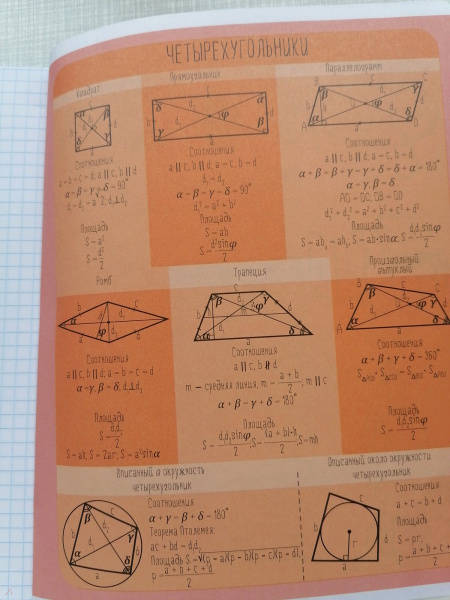 ЧЕТЫРЕХУГОЛЬНИКИ
Квадрат
Соотношения
a = b = c = d; a ∥ c, b ∥ d
α = β = γ = δ = 90°
Площадь
S = a²
S = d²/2
Прямоугольник
Соотношения
a ∥ c, b ∥ d; a = c, b = d
α = β = γ = δ = 90°
d₁ = d₂
d₁² = a² + b²
Площадь
S = ab
S = d²sinφ/2
Параллелограмм
Соотношения
a ∥ c, b ∥ d; a = c, b = d
α + β = β + γ = γ + δ = δ + α = 180°
α = γ, β = δ
AO = OC, OB = OD
d₁² + d₂² = a² + b² + c² + d²
Площадь
S = ab·sinα; S = d₁d₂sinφ/2
Ромб
Соотношения
a ∥ c, b ∥ d; a = b = c = d
α = γ, β = δ, d₁⊥d₂
Площадь
S = d₁d₂/2
S = ah; S = 2ar; S = a²sinα
Трапеция
Соотношения
a ∥ c, b ∦ d
m — средняя линия, m = a + b/2; m ∥ c
α + β = γ + δ = 180°
Площадь
S = d₁d₂sinφ/2; S = mh
Произвольный
выпуклый
Соотношения
α + β + γ + δ = 360°
Площадь
S = d₁d₂sinφ/2
Вписанный в окружность
четырехугольник
Соотношения
α + γ = β + δ = 180°
Теорема Птолемея:
ac + bd = d₁d₂
Площадь S = √(p − a)(p − b)(p − c)(p − d),
p = a + b + c + d/2
Описанный около окружности
четырехугольник
Соотношения
a + c = b + d
Площадь
S = pr,
p = a + b + c +